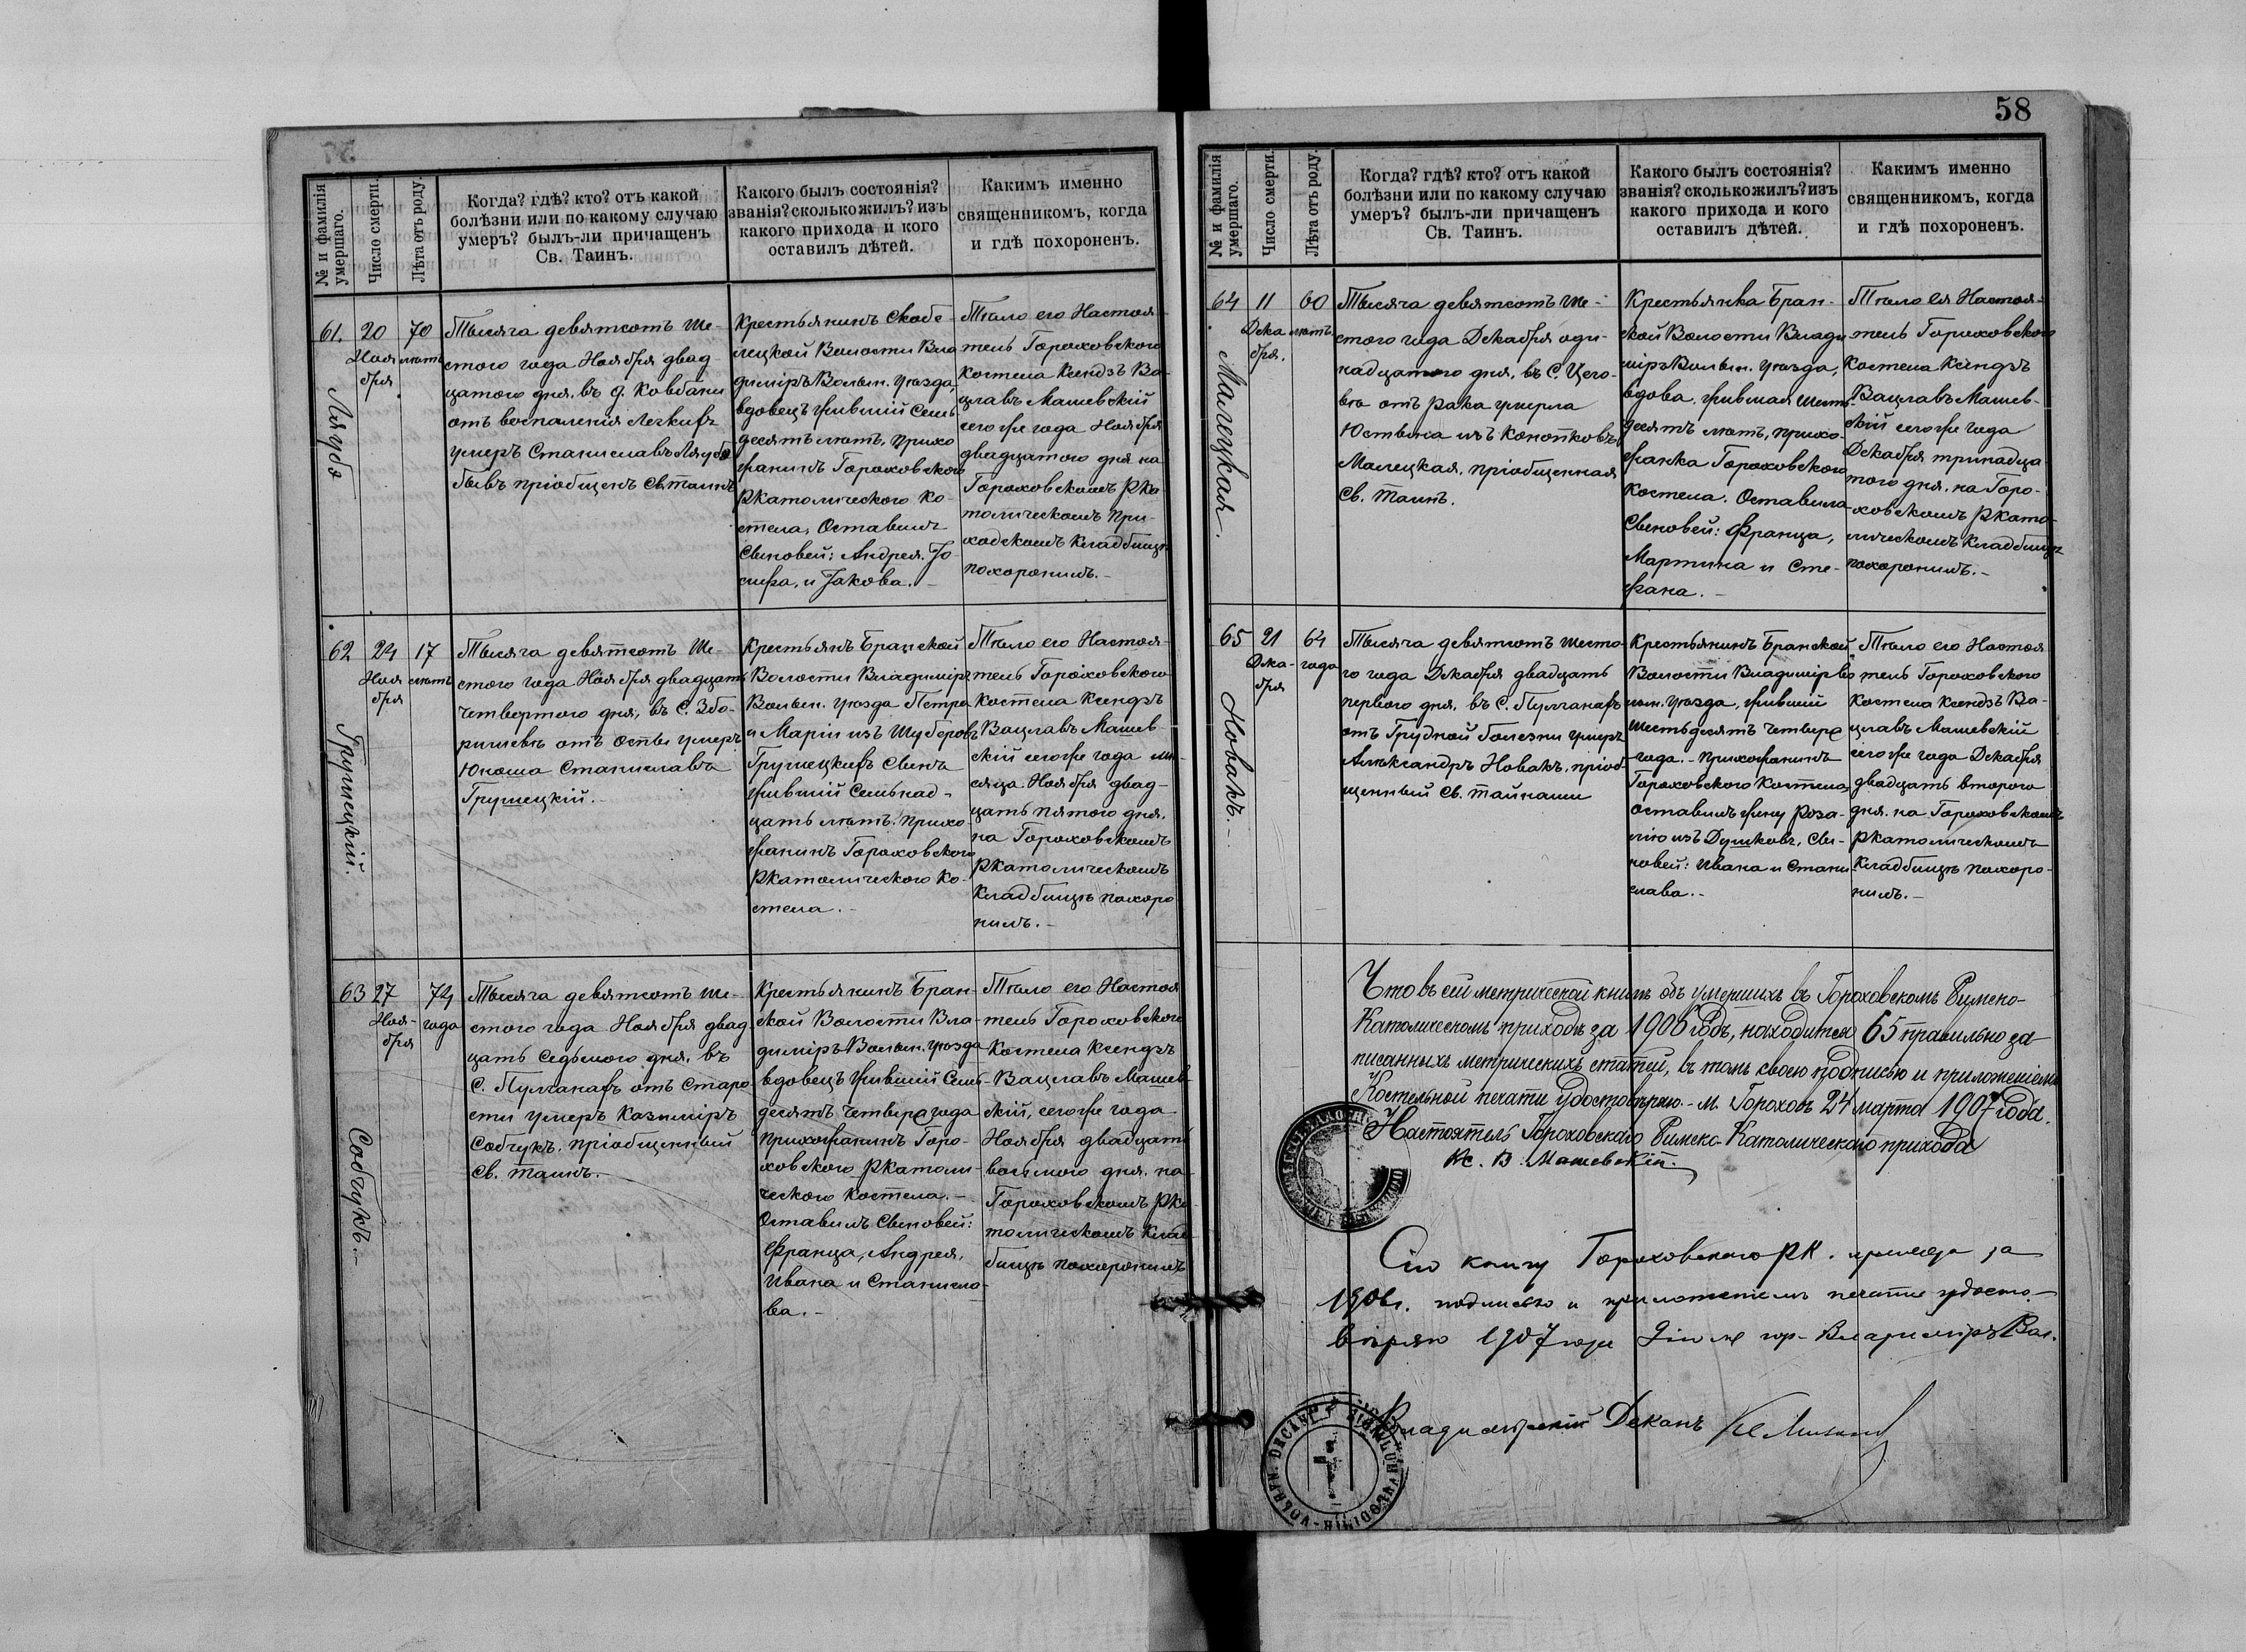 № и фамилія умершаго.
Число смерти.
Лѣта отъ роду.
Когда? гдѣ? кто? отъ какой
болѣзни или по какому случаю
умеръ? былъ-ли причащенъ
Св. Таинъ.
Какого былъ состоянія?
званія? сколько жилъ? изъ
какого прихода и кого
оставилъ дѣтей.
Какимъ именно
священникомъ, когда
и гдѣ похороненъ.
61.
Ляуба
20
Ноя
бря
70
лѣтъ
Тысяча девятсотъ Ше-
стого года Ноября двад-
цатого дня, въ д. Ковбани
отъ воспаленія Легкихъ
умеръ Станиславъ Ляуба
бывъ пріобщенъ Св. таинъ
Крестьянинъ Скобе-
лецкой Волости Вла
димiръ Волын. уѣзда,
вдовецъ жившій Семь
десятъ лѣтъ, прихо
жанинъ Гороховского
Ркатолического Ко-
стела, Оставилъ
Сыновей: Андрея, Іо-
сифа, и Іакова. -
Тѣло его Настоя-
тель Гороховского
Костела Ксендзъ Ва-
цлавъ Машевскій
сегоже года Ноября
двадцатого дня на
Гороховскомъ Рка-
толическомъ при-
ходскомъ Кладбищѣ
похоронилъ. -
62
Грушецкій.
24
Ноя
бря
17
лѣтъ
Тысяча девятсотъ Ше-
стого года Ноября двадцать
четвертого дня, въ С. Збо-
ришевѣ отъ Оспы умеръ
Юноша Станиславъ
Грушецкій. -
Крестьянъ Бранской
Волости Владимiръ
Волын. уѣзда Петра
и Маріи изъ Шуберовъ
Грушецкихъ Сынъ
жившій Семьнад-
цать лѣтъ. прихо-
жанинъ Гороховского
Ркатолического Ко-
стела. -
Тѣло его Настоя-
тель Гороховского
Костела Ксендзъ
Вацлавъ Машев-
скій сегоже года мѣ-
сяца Ноября двад-
цать пятого дня,
на Гороховскомъ
Ркатолическомъ
Кладбищѣ похоро
нилъ. -
63
Собчукъ. -
27
Ноя-
бря
74
года
Тысяча девятсотъ ше-
стого года Ноября двад
цать седьмого дня, въ
С. Пулганахъ отъ Старо
сти умеръ Казимiръ
Собчукъ, пріобщенный
Св. таинъ. -
Крестьянинъ Бран-
ской Волости Вла-
димiръ Волын. уѣзда
вдовецъ жившій Семь-
десятъ четыре года
прихожанинъ Горо-
ховского Ркатоли-
ческого Костела. -
Оставилъ Сыновей:
Франца, Андрея,
Ивана и Станисла-
ва. -
Тѣло его Настоя
тель Гороховского
Костела Ксендзъ
Вацлавъ Машев-
скій, сегоже года
Ноября двадцать
восьмого дня. на
Гороховскомъ Рка-
толическомъ Клад
бищѣ похоронилъ
58
№ и фамилія умершаго.
Число смерти.
Лѣта отъ роду.
Когда? гдѣ? кто? отъ какой
болѣзни или по какому случаю
умеръ? былъ-ли причащенъ
Св. Таинъ.
Какого былъ состоянія?
званія? сколько жилъ? изъ
какого прихода и кого
оставилъ дѣтей.
Какимъ именно
священникомъ, когда
и гдѣ похороненъ.
64
Малецкая.
11
Дека
бря.
60
лѣтъ
Тысяча девятсотъ Ше-
стого года Декабря оди-
надцатого дня, въ С. Цего-
вѣ отъ рака умерла
Юстына изъ Конотковъ
Малецкая, пріобщенная
Св. таинъ.
Крестьянка Бран-
ской Волости Влади
мiръ Волын. уѣзда,
вдова, жившая шесть-
десятъ лѣтъ, прихо-
жанка Гороховского
Костела. Оставила
Сыновей: Франца,
Мартина и Сте-
фана. -
Тѣло ея Настоя-
тель Гороховского
Костела Ксендзъ
Вацлавъ Машев-
скій сегоже года
Декабря тринадца
того дня, на Горо-
ховскомъ Ркато-
лическомъ Кладбищѣ
похоронилъ. -
65
Новакъ. -
21
Дека-
бря
64
года
Тысяча девятсотъ шесто-
го года Декабря двадцать
первого дня, въ С. Пулганахъ
отъ Грудной болезни умеръ
Александръ Новакъ, пріоб-
щенный Св. тайнами
Крестьянинъ Бранской
Волости Владимiръ Во
лын. уѣзда, жившій
шестьдесятъ четыре
года. - прихожанинъ
Гороховского Костела,
оставилъ жену Роза-
лію изъ Душковъ, Сы-
новей: Ивана и Стани
слава. -
Тѣло его Настоя
тель Гороховского
Костела Ксендзъ Ва-
цлавъ Машевскій
сегоже года Декабря
двадцать второго
дня. на Гороховскомъ
Ркатолическомъ
Кладбищѣ похоро-
нилъ. -
Что въ сей метрической книгѣ объ умершихъ въ Гороховскомъ Римско-
Католическомъ приходѣ за 1906 годъ, находится 65 правильно за
писанныхъ метрическихъ статей, въ томъ своею подписью и приложеніемъ
Костельной печати удостовѣряю. - м. Гороховъ 24 марта 1907 года.
Настоятель Гороховскаго Римско-Католическаго прихода
Кс. В. Машевскій.
Сію книгу Гороховского РК. прихода за
1906 г. подписью и приложеніемъ печати удосто-
вѣряю 1907 года гор. Владимiръ Вол.
Владимірскій Деканъ